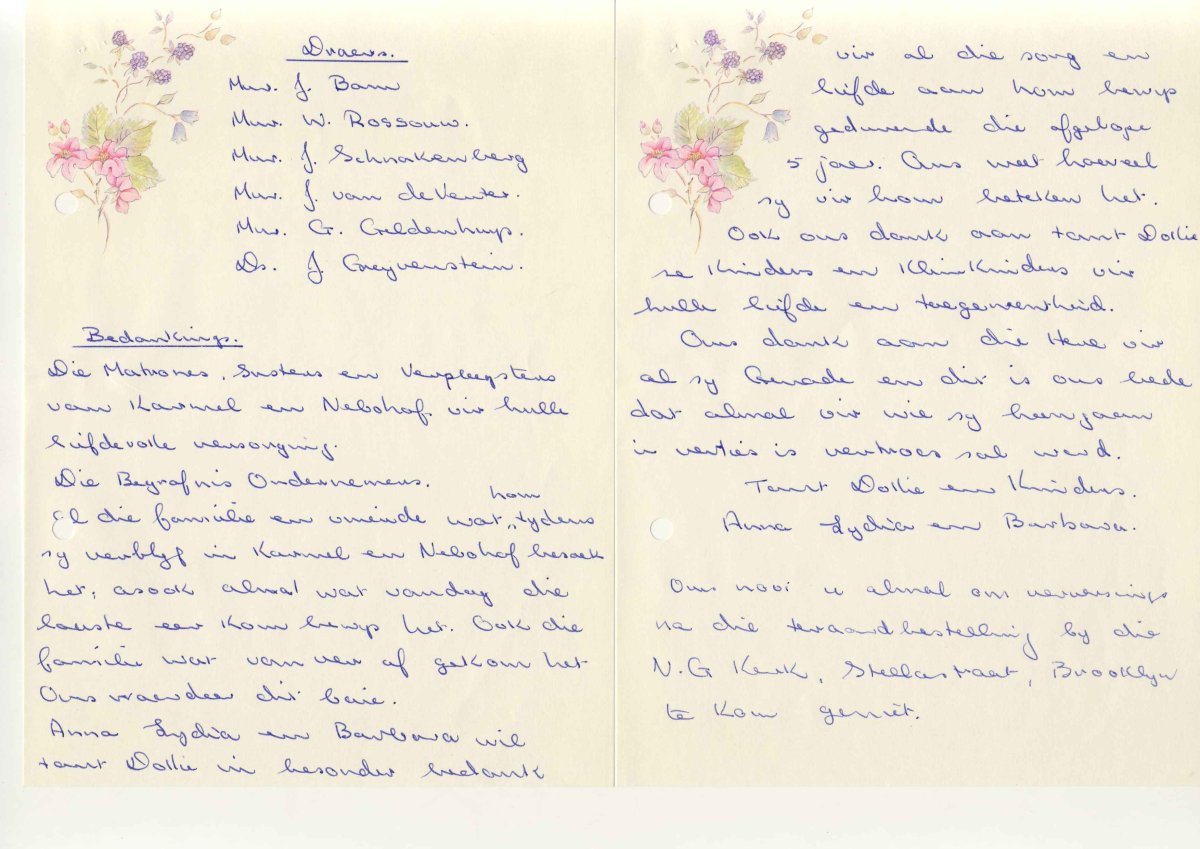 Draers.
Mnr. J. Bam
Mnr. W. Rossouw.
Mnr. J. Schnakenberg
Mnr. J. van de Venter.
Mnr. G. Geldenhuys.
Ds. J. Greyvenstein.
Bedankings.
Die Matrones, Susters en Verpleegsters
van Karmel en Nebohof vir hulle
liefdevolle versorging.
Die Begrafnis Ondernemers.
hom
El die familie en vriende wat „tydens
sy verblyf in Karmel en Nebohof besoek
het, asook almal wat vandag die
laaste eer kom bewys het. Ook die
familie wat van ver af gekom het
Ons waardeer dit baie.
Anna Lydia en Barbara wil
tant Dollie in besonder bedank
vir al die sorg en
liefde aan hom bewys
gedurende die afgelope
5 jaar. Ons weet hoeveel
sy vir hom beteken het.
Ook ons dank aan tant Dollie
se Kinders en Kleinkinders vir
hulle liefde en toegeneentheid.
Ons dank aan die Here vir
al sy Genade en dit is ons bede
dat almal vir wie sy heengaan
'n verlies is vertroos sal word.
Tant Dollie en Kinders.
Anna Lydia en Barbara.
Ons nooi u almal om verversings
na die teraardbestelling by die
N.G Kerk, Stellastraat, Brooklyn
te kom geniet.